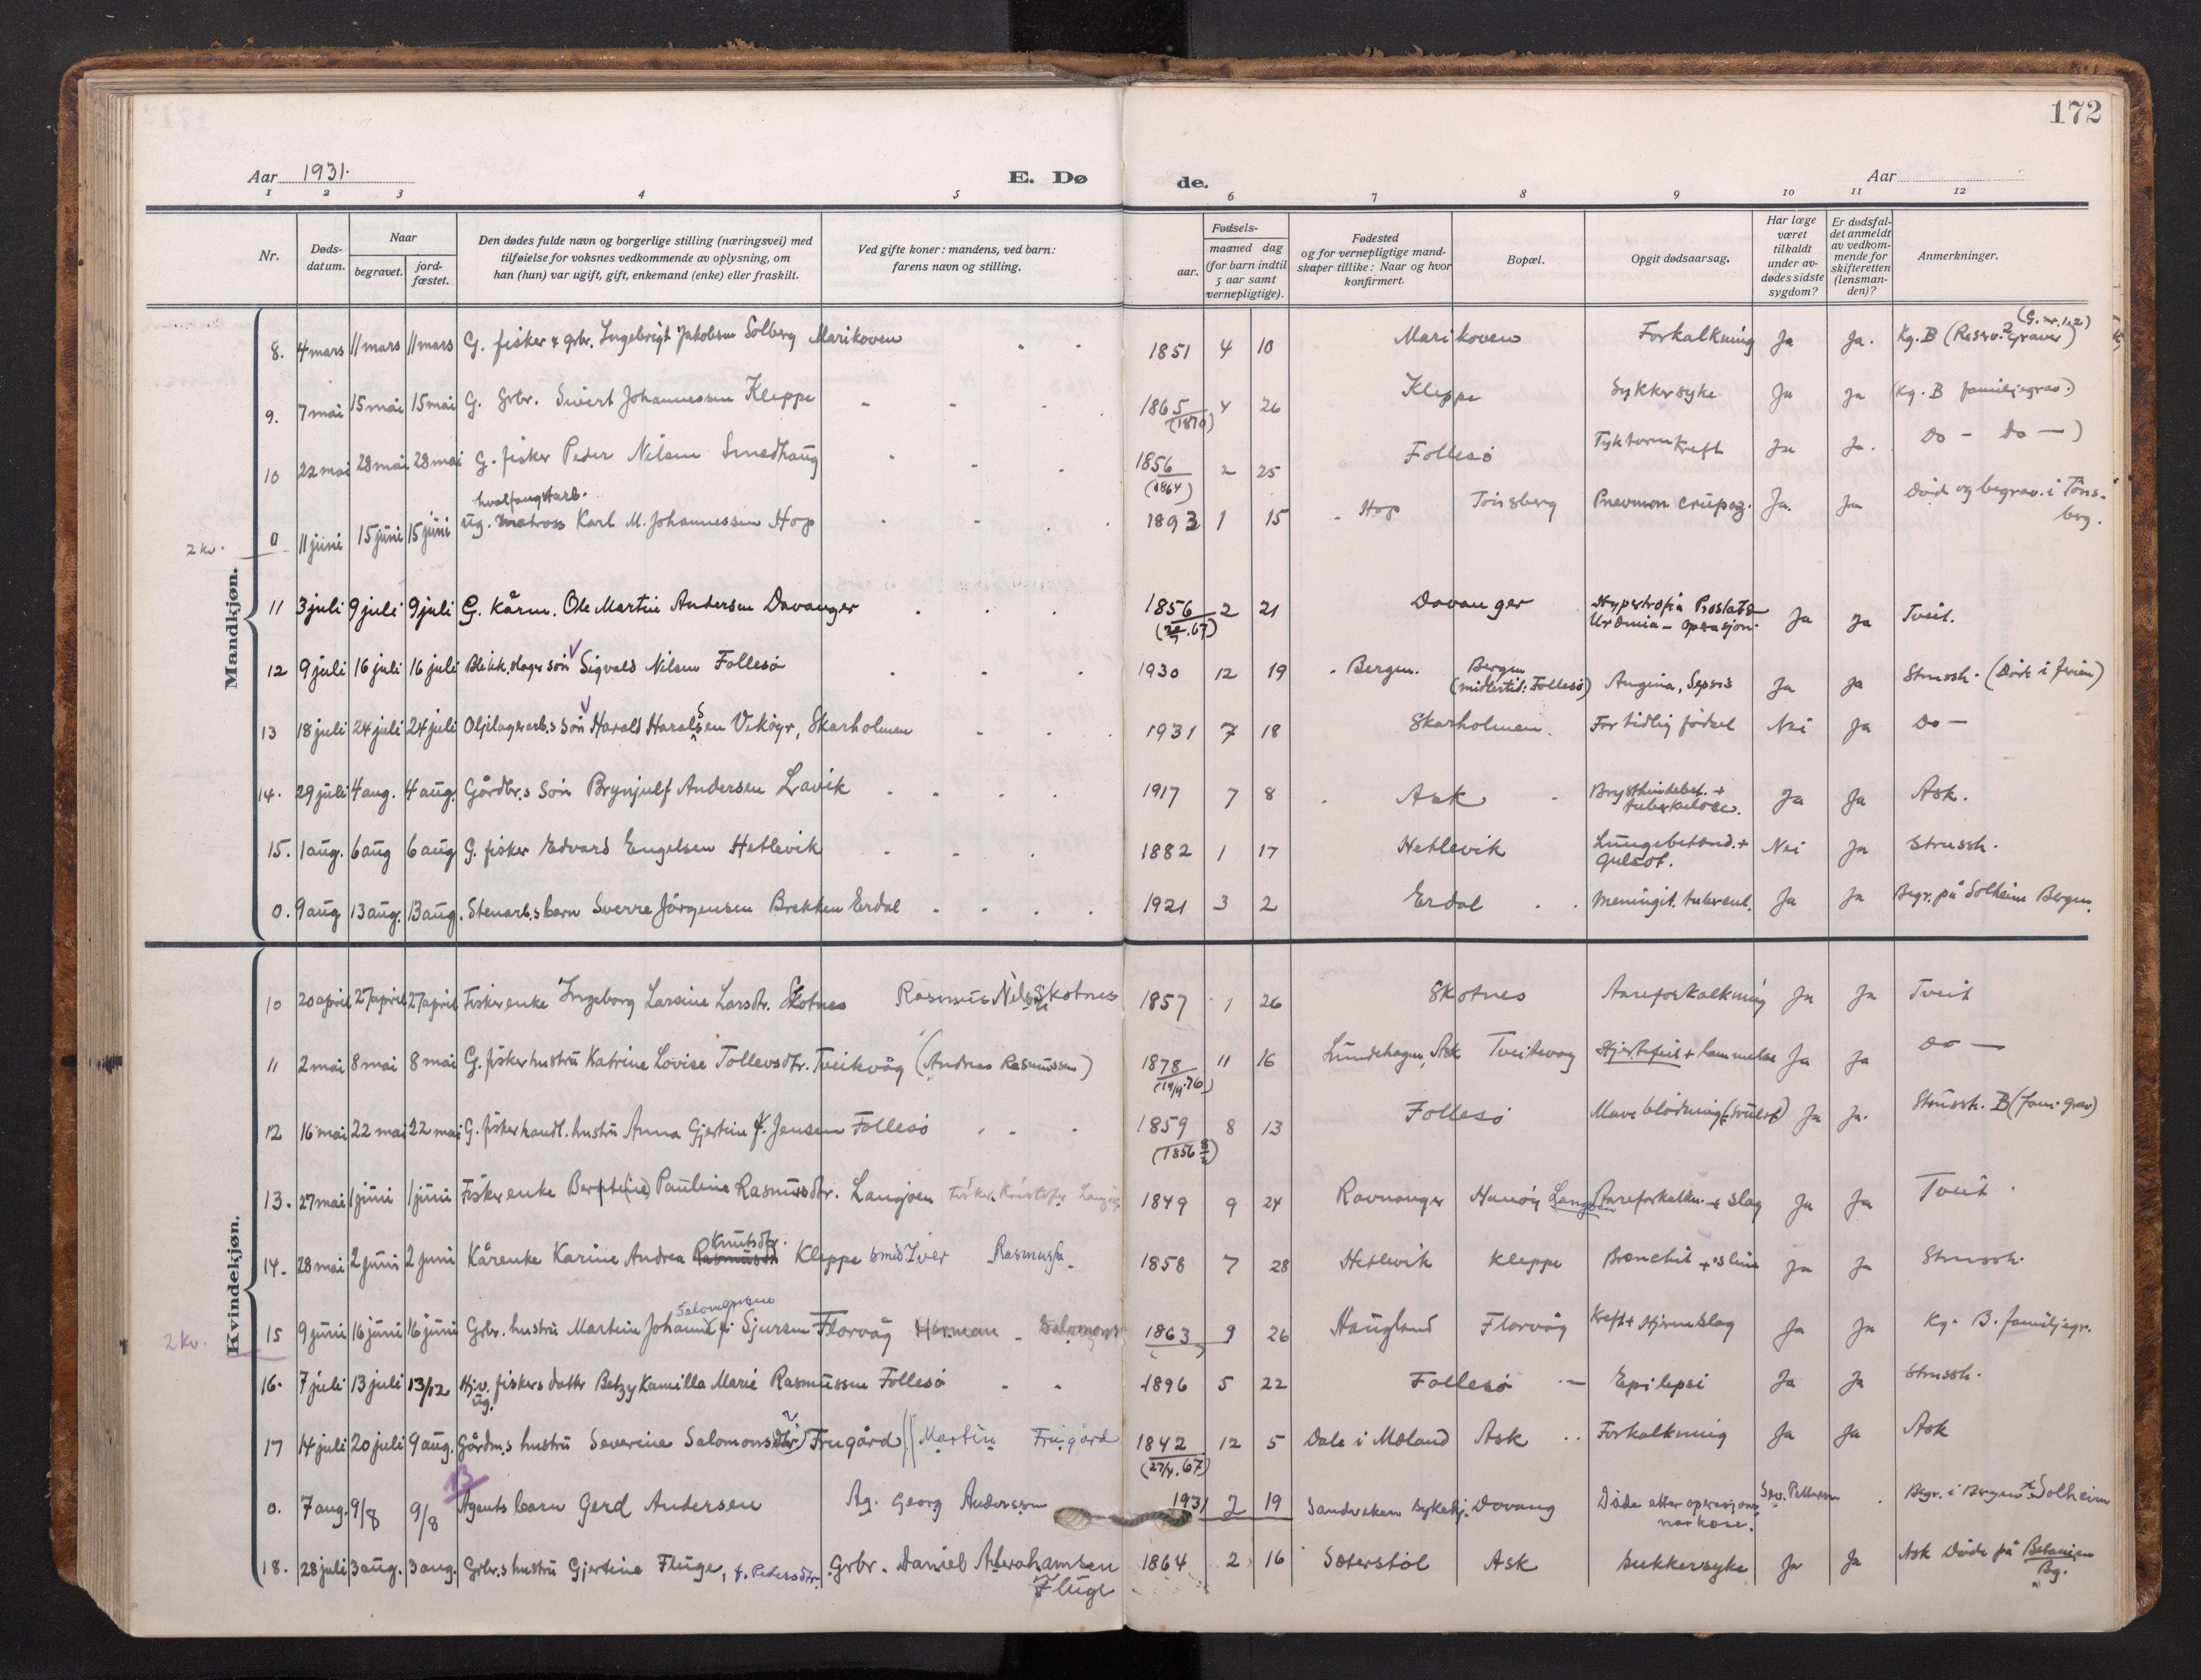 172
Aar 1931.
E. Dø de.
Aar
1 2 3 4 5 6 7 8 9 10 11 12
Nr.
Døds-datum.
Naar
begravet.
jord-fæstet.
Den dødes fulde navn og borgerlige stilling (næringsvei) med
tilføielse for voksnes vedkommende av oplysning, om
han (hun) var ugift, gift, enkemand (enke) eller fraskilt.
Ved gifte koner: mandens, ved barn:
farens navn og stilling.
Fødsels-
aar.
maaned dag
(for barn indtil
5 aar samt
vernepligtige).
Fødested
og for vernepligtige mand-
skaper tillike: Naar og hvor
konfirmert.
Bopæl.
Opgit dødsaarsag.
Har læge
været
tilkaldt
under av-
dødes sidste
sygdom?
Er dødsfal-
det anmeldt
av vedkom-
mende for
skifteretten
(lensman-
den)?
Anmerkninger.
Mandkjøn.
8. 4 mars 11 mars 11 mars G. fisker & grbr. Ingebrigt Jakobsen Solberg Marikoven - - 1851 4 10 Marikoven Forkalkning Ja Ja. Kg. B (Reserv. 2 graver) (G. nr. 1, 2)
9. 7 mai 15 mai 15 mai G. Grbr. Sivert Johannessen Kleppe - - - 1865 (1870) 4 26 Kleppe Sykkersyke Ja Ja (Kg. B familjegrav.)
10 22 mai 28 mai 28 mai G. fisker Peder Nilsen Smedhaug - - - 1856 (1864) 2 25 Follesö Tyktarmkreft Ja Ja. Do - Do -)
2 kv. 0 11 juni 15 juni 15 juni hvalfangstarb. ug. matros Karl M. Johannessen Hop - - - 1893 1 15 - Hop Tönsberg Pnevmon crupøs. Ja. Ja Död og begrav. i Töns-
berg.
11 3 juli 9 juli 9 juli G. Kårm. Ole Martin Andersen Davanger - - - 1856 2 21 Davanger Hypertrofia Prostata Ja Ja Tveit.
Urämia - operasjon.
12 9 juli 16 juli 16 juli Blikk.slager sön Sigvald Nilsen Follesö - - - 1930 12 19 - Bergen. Bergen (midlertid: Follesö) Angina, Sepsis Ja Ja Strussh. (Död i ferien)
13 18 juli 24 juli 24 juli Oljelagerarb.s Sön Harald Haralsen Viköyr, Skarholmen - - - 1931 7 18 Skarholmen. For tidlig födsel Nei Ja Do -
14. 29 juli 4 aug. 4 aug. Gårdbr.s Sön Brynjulf Andersen Lavik - - - - 1917 7 8 - Ask - Brysthindebet. + tuberkulose. Ja Ja Ask.
15. 1 aug. 6 aug 6 aug G. fisker Edvard Engelsen Hetlevik - - - 1882 1 17 Hetlevik Lungebetænd. + Gulsot. Nei Ja Strussh.
0. 9 aug 13 aug. 13 aug. Stenarb.s barn Sverre Jörgensen Brekken Erdal - - - - 1921 3 2 Erdal - - Meningit. tubercul. Ja Ja Begr. på Solheim Bergen.
Kvindekjøn.
10 20 april 27 april 27 april Fiskerenke Ingeborg Larsine Larsdtr. Skotnes Rasmus Nilsen Skotnes 1857 1 26 Skotnes Aareforkalkning Ja Ja Tveit
11 2 mai 8 mai 8 mai G. fiskerhustru Katrine Lovise Tollevsdtr. Tveitevåg (Andreas Rasmussen) 1878 11 16 Lundehagen, Ask Tveitevåg Hjertefeil + lammelse Ja Ja Do -
12 16 mai 22 mai 22 mai G. fiskerhandl. hustru Anna Gjertine f. Jensen Follesö - - - 1859 (1856) 8 13 Follesö Maveblödning (svulst) Ja Ja. Strussh. B (fam. grav)
13. 27 mai 1 juni 1 juni Fiskerenke Pauline Rasmusdtr. Langöen Fisker Kristofer 1849 9 24 Ravnanger Hanöy Langöen Aareforkalkn. + slag Ja Ja Tveit
14. 28 mai 2 juni 2 juni Kårenke Karine Andrea Rasmusdtr Knutsdtr. Kleppe smed Iver Rasmussen 1858 7 28 Hetlevik Kleppe Bronchit + slim Ja Ja Strussh.
2 kv. 15 9 juni 16 juni 16 juni Grbr. hustru Martine Johanne Salomonsen f. Sjursen Florvåg Herman Salomonsen 1863 9 26 Haugland Florvåg Kreft + Hjerneslag Ja Ja Kg. B. familjegr.
16. 7 juli 13 juli 13/12 Hjv. ug. fiskers datter Betzy Kamilla Marie Rasmussen Follesö - - 1896 5 22 Follesö - Epilepsi Ja Ja Strussh.
17 14 juli 20 juli 9 aug. Gårdm.s hustru Severine Salomonsdtr. Frugård (Martin Frugård 1842 (27/4. 67) 12 5 Dale i Mæland Ask - Forkalkning Ja Ja Ask
0. 7 aug. 9/8 9/8 Agents barn Gerd Andersen Ag. Georg Andersen 1931 2 19 Sandviken sykehj. Davang Döde etter operasjons narkose. Begr. i Bergen Solheim
18. 28 juli 3 aug. 3 aug. Grbr.s hustru Gjertine Fluge, f. Pedersdtr. Grbr. Daniel Abrahamsen
Fluge 1864 2 16 Sæterstöl Ask Sukkersyke Ja Ja Ask Döde på Betanien
Bg.